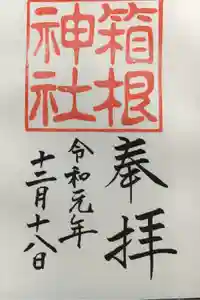 箱根
神社
奉拝
令和元年
十二月十八日